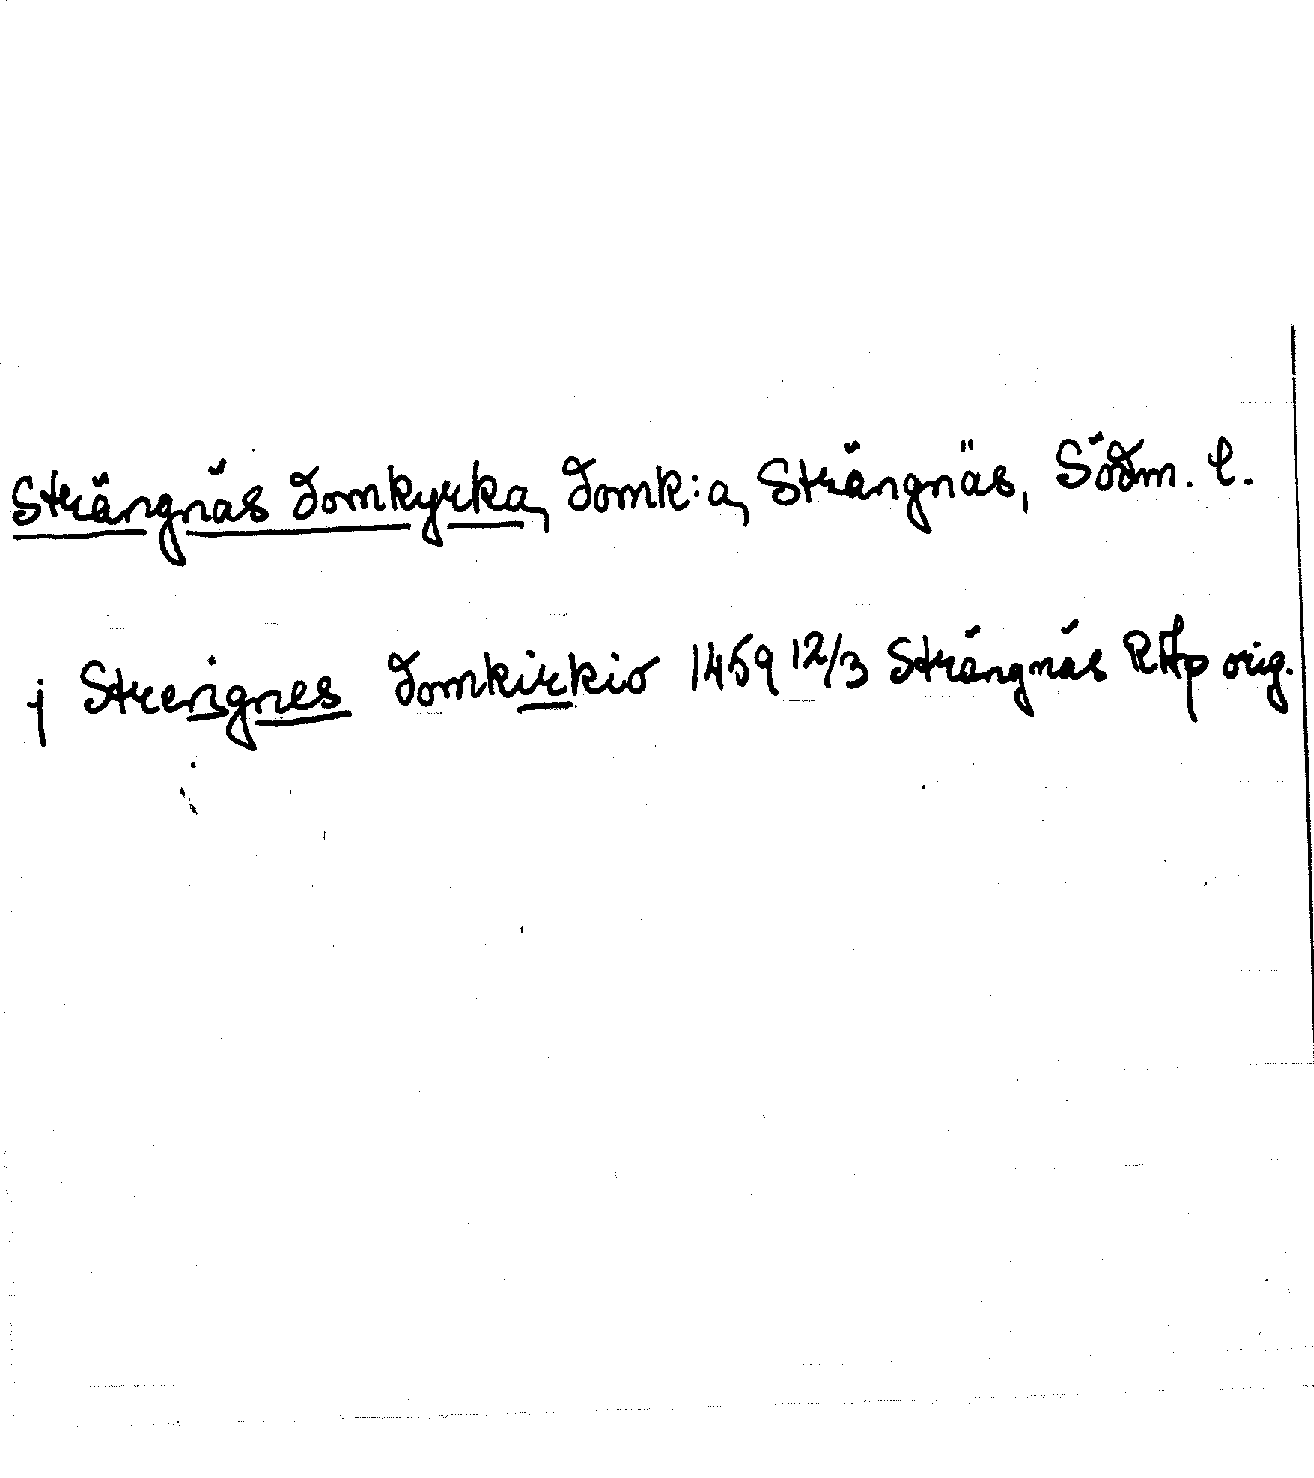 Strängnäs domkyrka, domk:a, Strängnäs, Södm. l.
j Strengnes domkirkio 1459 12/3 Strängnäs RAp orig.